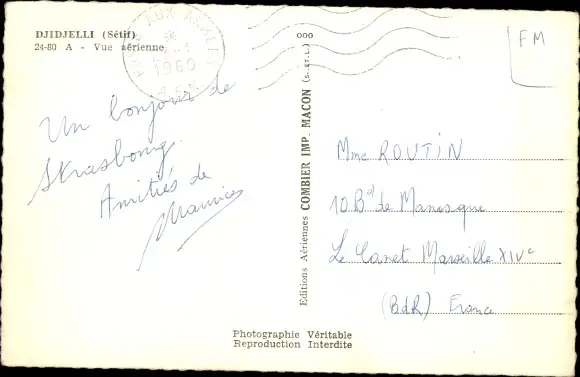 DJIDJELLI (Sétif)
24-80 A - Vue aérienne
POSTE AUX ARMEES
1960
FM
Un bonjour de
Strasbourg
Amitiés de
Maurice
Editions Aériennes COMBIER IMP. MACON (S.-ET-L.)
Mme ROUTIN
10 Bd de Manosque
Le Canet Marseille XIVe
(BdR) France
Photographie Véritable
Reproduction Interdite